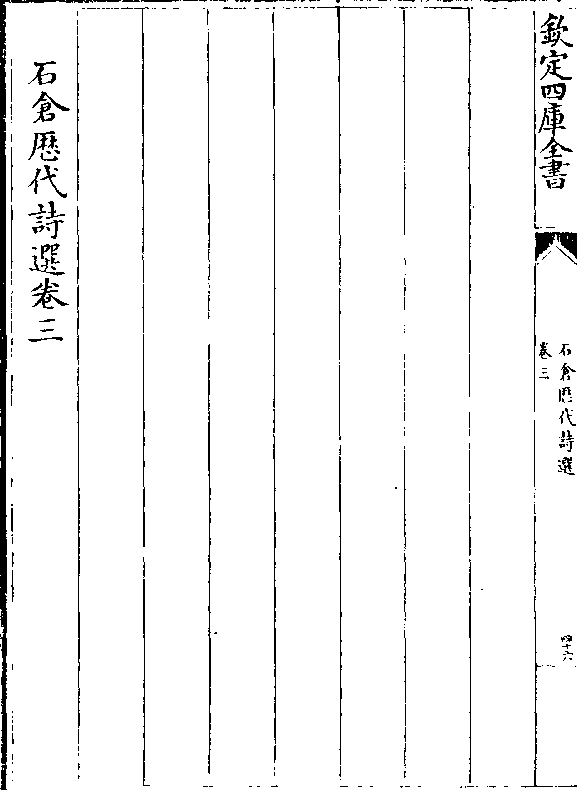 欽定四庫全書
石倉歴代詩選
卷三
四十六
石倉歴代詩選卷三